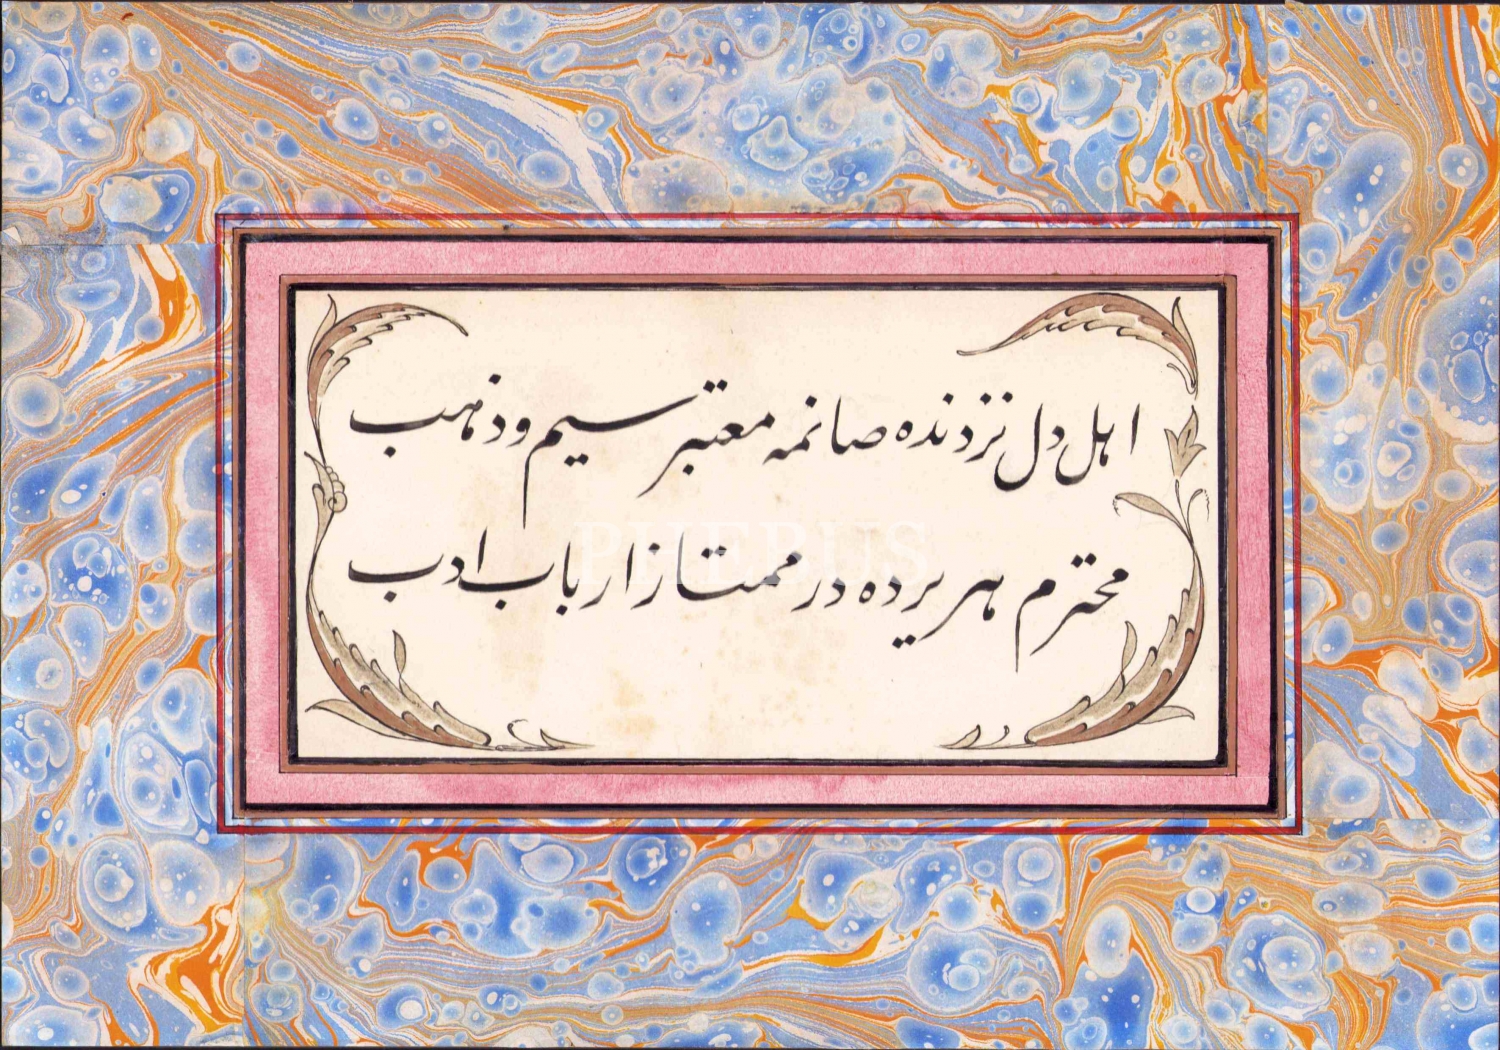 اهل دل نزدنده صانمه معتبر سیم و ذهب
محترم هر یرده در ممتاز ارباب ادب
PHEBUS